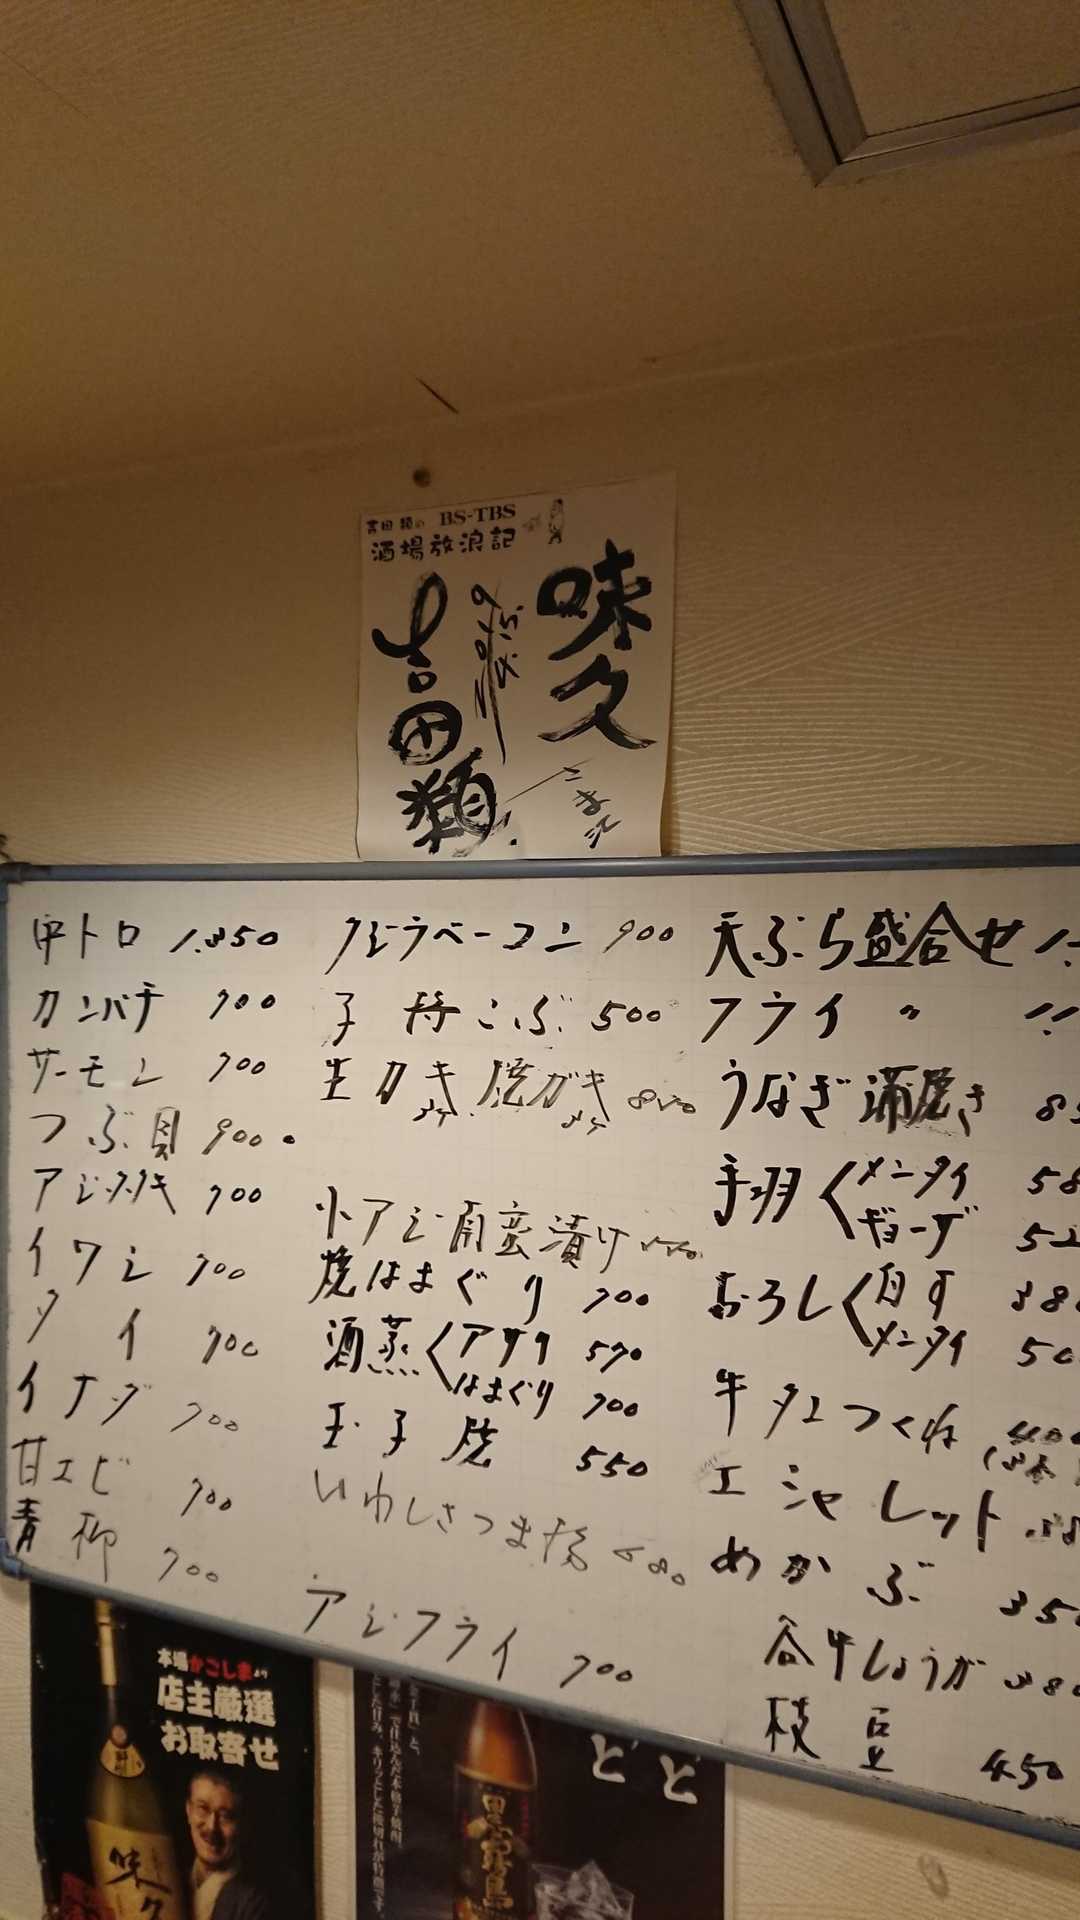 吉田類の BS-TBS
酒場放浪記
味久
さま江
2019
4.15.
吉田類
中トロ 1.350
カンパチ 700
サーモン 700
つぶ貝 900
アジタタキ 700
イワシ 700
タイ 700
イナダ 700
甘エビ 700
青柳 700
クジラベーコン 900
子持こぶ 500
生カキ 焼ガキ
小アジ南蛮漬け 550
焼はまぐり 700
酒蒸 アサリ 570
はまぐり 700
玉子焼 550
いわしさつま揚 580
アジフライ 700
天ぷら盛合せ
フライ 〃
うなぎ蒲焼き
手羽 メンタイ
ギョーザ
おろし 白す
メンタイ
牛タンつくね
エシャレット
めかぶ
谷中しょうが
枝豆 450
本場かごしまより
店主厳選
お取寄せ
味久
黒霧島
ど ど